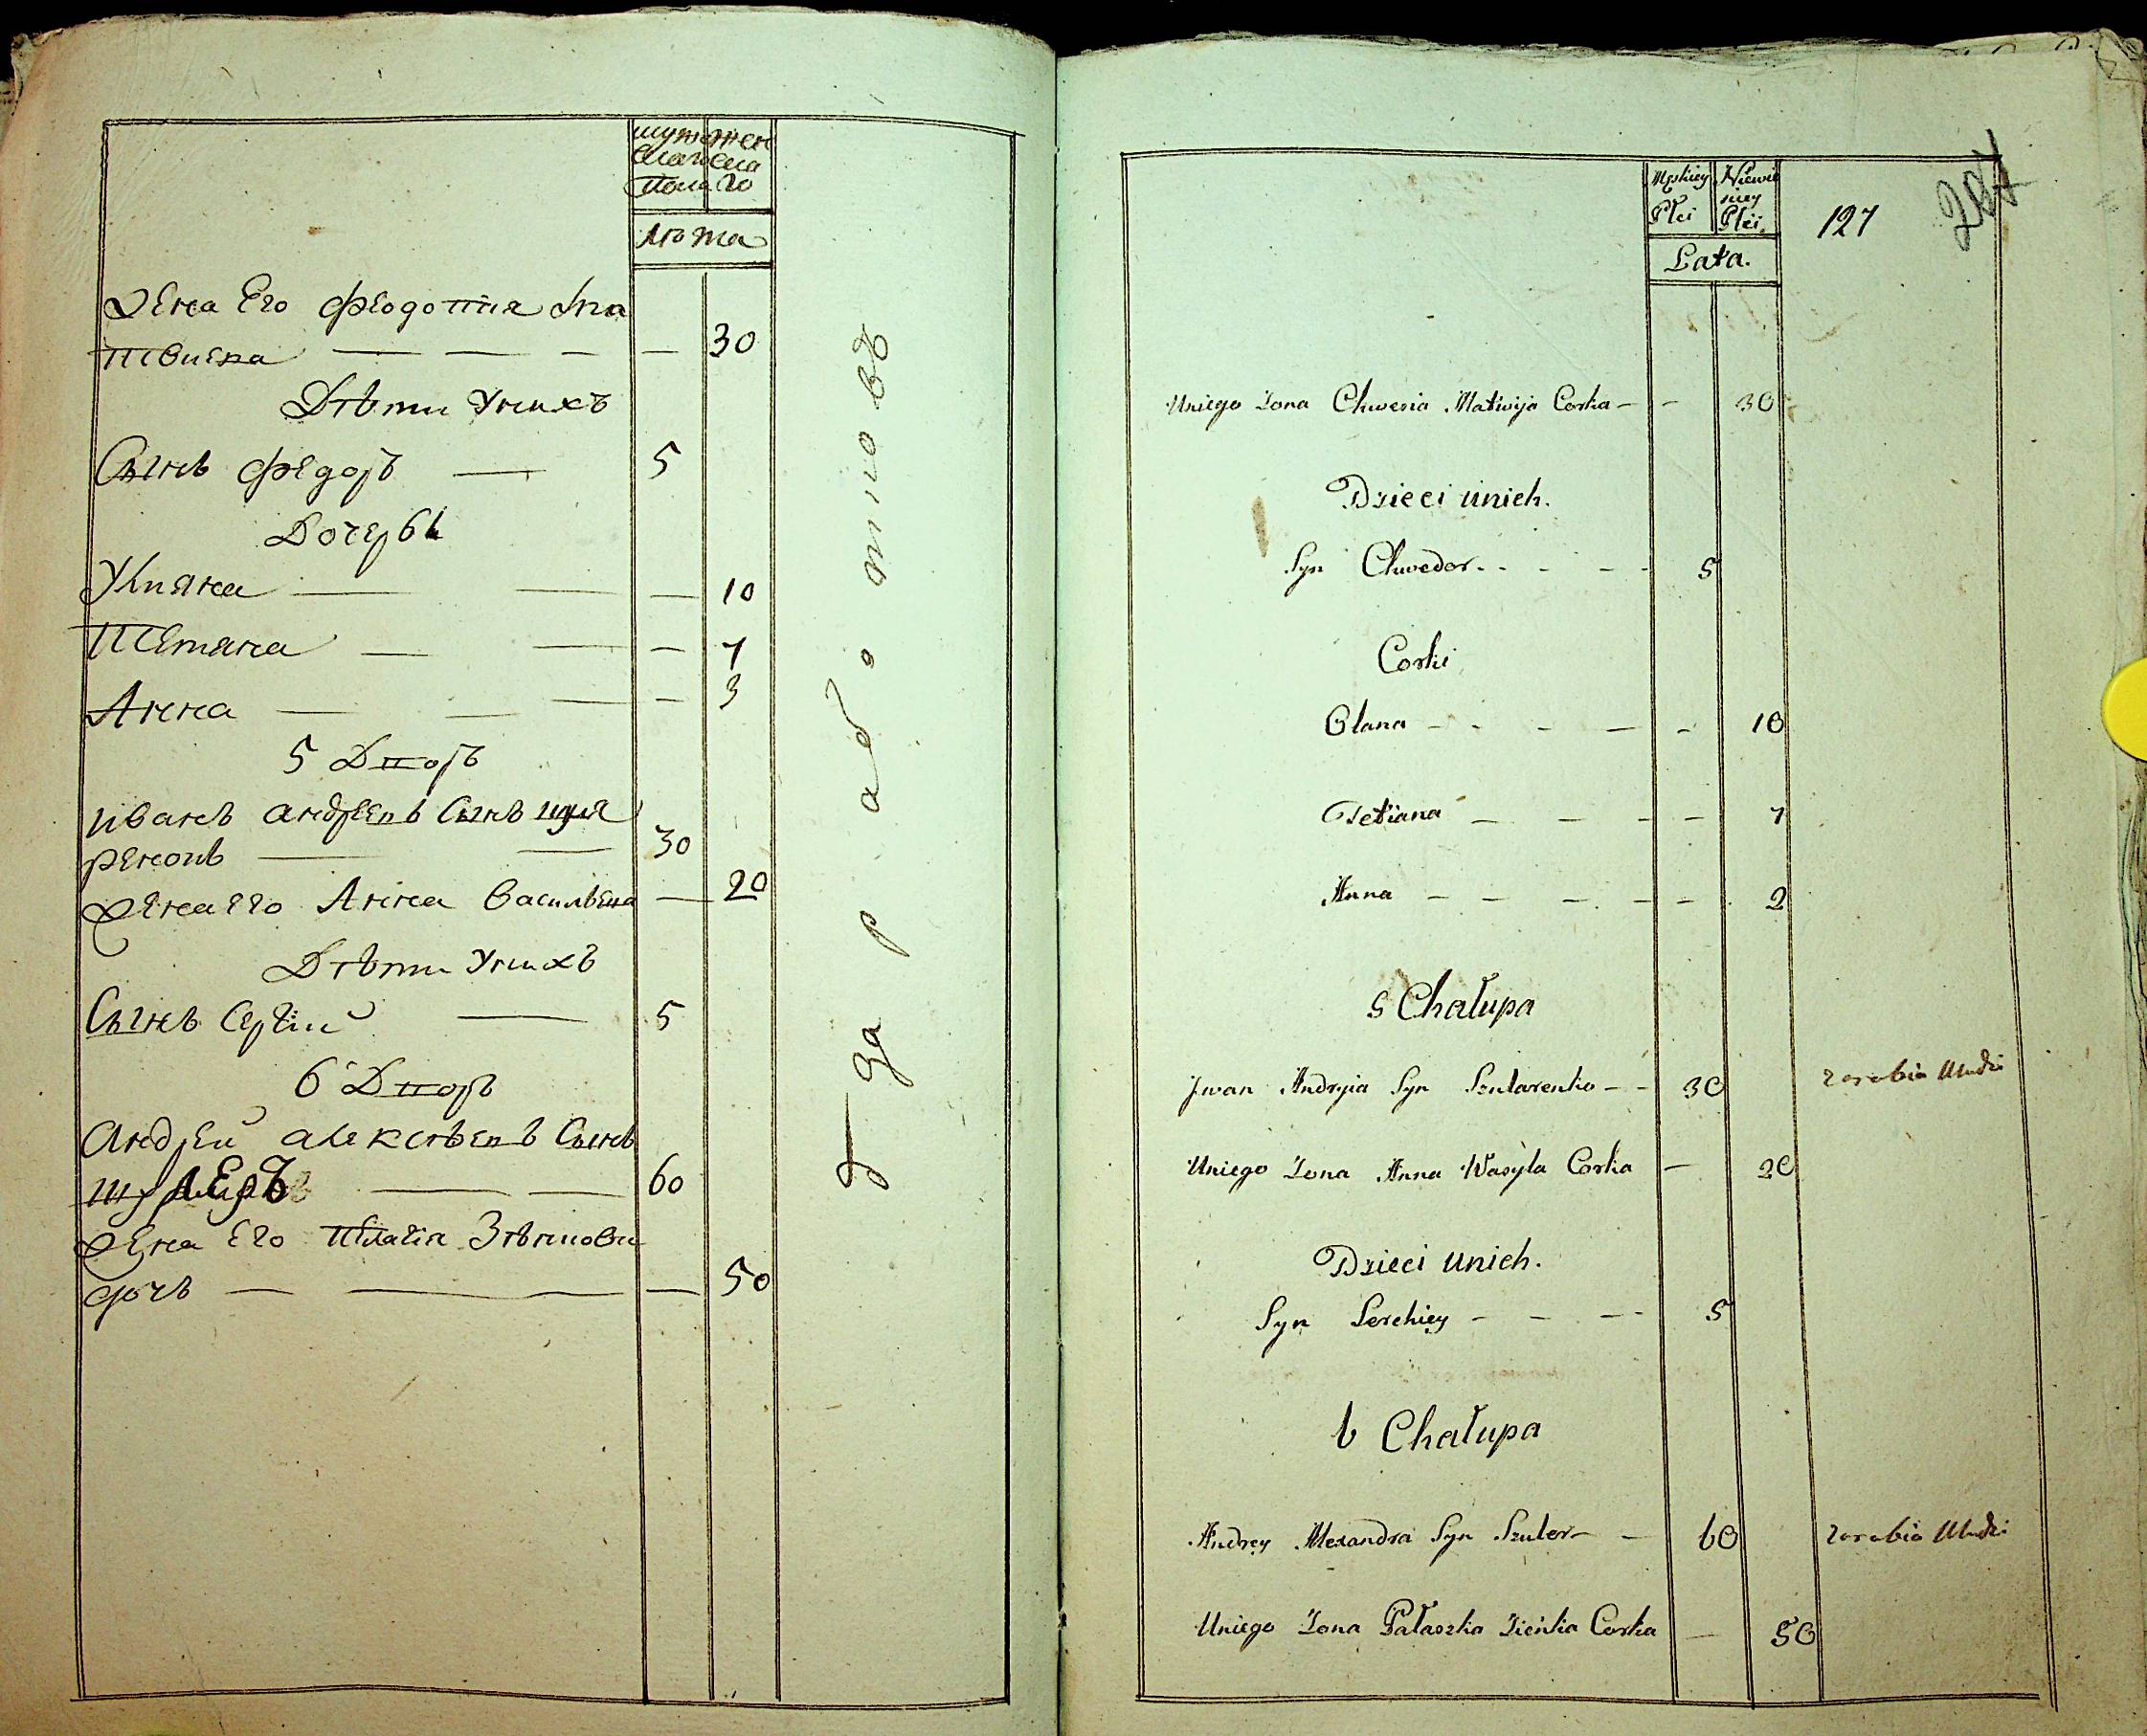 мужеска
женска
Пола го
Лѣта
Жена Его Феодотия Ма
твиева — — — — 30
Дѣти Унихъ
Сынъ Федоръ — 5
Дочерьи
Ульяна — — — 10
Тетяна — — — 7
Анна — — — — 3
5 Дворъ
Иванъ Андреевъ Сынъ Шуля
ренокъ — — 30
Жена Его Анна Васильева — 20
Дѣти Унихъ
Сынъ Сергiй — 5
6 Дворъ
Андрей Алексѣевъ Сынъ
Шулеръ — — 60
Жена Его Пелагiя Зѣнькови
дочь — — — — 50
Męskiey Płei
Niewie
sciey
Płei.
Lata.
127
Uniego Zona Chwesia Matwija Corka — — 30
Dzieci unich.
Syn Chwedor - - - - - 5
Corki
Olana - - - - - 10
Tetiana — — — — 7
Anna — — — — — 2
5 Chałupa
Jwan Andryia Syn Szularenko — — 30 zarabia
Uniego Zona Anna Wasyla Corka — 20
Dzieci unich.
Syn Serchiey — — — 5
6 Chałupa
Andrey Alexandra Syn Szuler — — 60 zarabia
Uniego Zona Pałaszka Zieńka Corka — 50